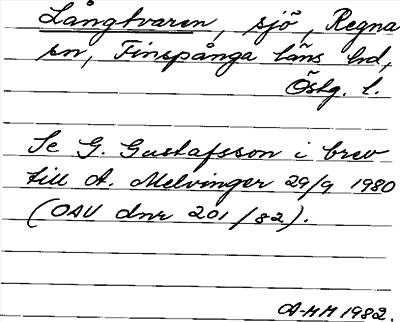 Långtvaren, sjö, Regna
sn, Finspånga läns hd,
Östg. l.
Se G. Gustafsson i brev
till A. Melvinger 29/9 1980
(OAU dnr 201/82).
A-MH 1982.